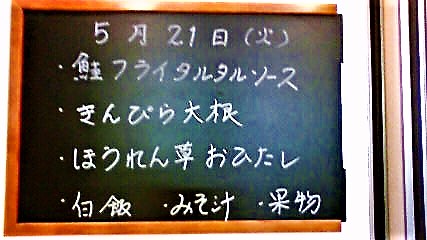 5月21日(火)
・鮭フライタルタルソース
・きんぴら大根
・ほうれん草おひたし
・白飯 ・みそ汁 ・果物